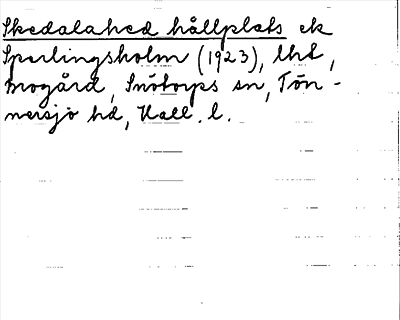 Skedalahed hållplats ek
Sperlingsholm (1923), lht,
mogård, Snötorps sn, Tön-
nersjö hd, Hall. l.